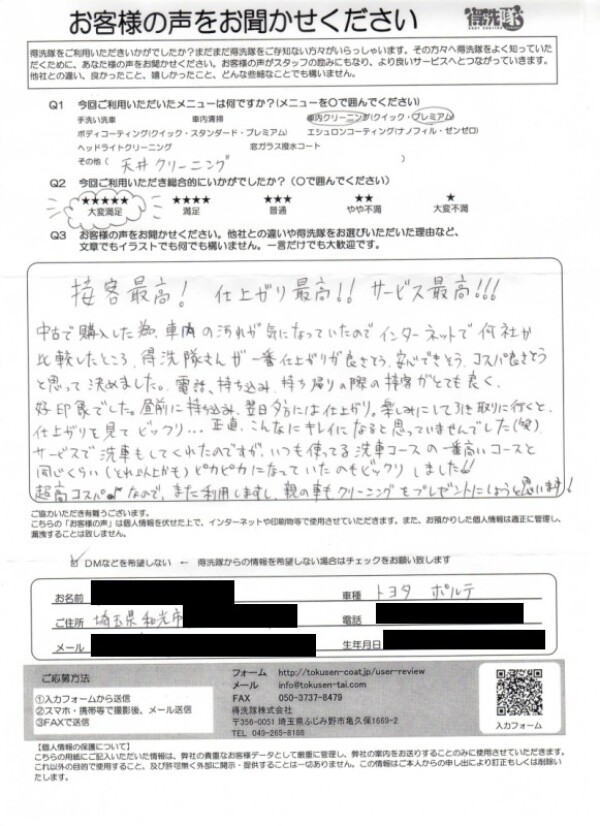 お客様の声をお聞かせください
得洗隊
得洗隊をご利用いただきいかがでしたか?まだまだ得洗隊をご存知ない方々がいらっしゃいます。その方々へ得洗隊をよく知っていた
だくために、あなた様の声をお聞かせください。お客様の声がスタッフの励みにもなり、より良いサービスへとつながっていきます。
他社との違い、良かったこと、嬉しかったこと、どんな些細なことでも構いません。
Q1 今回ご利用いただいたメニューは何ですか?(メニューを○で囲んでください)
手洗い洗車 車内清掃 車内クリーニング(クイック・プレミアム)
ボディコーティング(クイック・スタンダード・プレミアム) エシュロンコーティング(ナノフィル・ゼンゼロ)
ヘッドライトクリーニング 窓ガラス撥水コート
その他( 天井クリーニング )
Q2 今回ご利用いただき総合的にいかがでしたか?(○で囲んでください)
★★★★★ ★★★★ ★★★ ★★ ★
大変満足 満足 普通 やや不満 大変不満
Q3 お客様の声をお聞かせください。他社との違いや得洗隊をお選びいただいた理由など、
文章でもイラストでも何でも構いません。一言だけでも大歓迎です。
接客最高! 仕上がり最高!! サービス最高!!!
中古で購入した為、車内の汚れが気になっていたのでインターネットで何社か
比較したところ、得洗隊さんが一番仕上がりが良さそう、安心できそう、コスパ良さそう
と思って決めました。電話、持ち込み、持ち帰りの際の接客がとても良く、
好印象でした。昼前に持ち込み、翌日夕方には仕上がり。楽しみにして引き取りに行くと、
仕上がりを見てビックリ...正直、こんなにキレイになると思っていませんでした(笑)
サービスで洗車もしてくれたのですが、いつも使ってる洗車コースの一番高いコースと
同じくらい(それ以上かも)ピカピカになっていたのもビックリしました!!
超高コスパなので、また利用しますし、親の車もクリーニングをプレゼントにしようと思います!
ご協力いただき有難うございます。
こちらの「お客様の声」は個人情報を伏せた上で、インターネットや印刷物等で使用させていただきます。また、お預かりした個人情報は適正に管理し、
漏洩することは致しません。
DMなどを希望しない ← 得洗隊からの情報を希望しない場合はチェックをお願い致します
お名前 車種 トヨタ ポルテ
ご住所 埼玉県和光市 電話
メール 生年月日
ご応募方法
①入力フォームから送信
②スマホ・携帯等で撮影後、メール送信
③FAXで送信
フォーム http://tokusen-coat.jp/user-review
メール info@tokusen-tai.com
FAX 050-3737-8479
得洗隊株式会社
〒356-0051 埼玉県ふじみ野市亀久保1669-2
TEL 049-265-8188
入力フォーム
【個人情報の保護について】
こちらの用紙にご記入いただいた情報は、弊社の貴重なお客様データとして厳重に管理し、弊社の案内をお送りすることのみに使用させていただきます。
これ以外の目的で使用すること、及び許可無く外部に開示・提供することは一切ありません。この情報はご本人からの申し出により訂正もしくは削除い
たします。